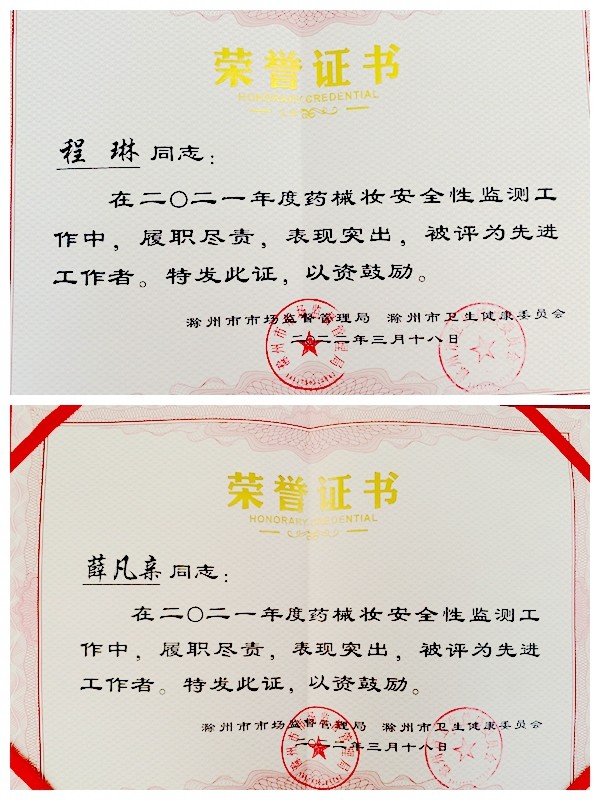 荣誉证书
HONORARY CREDENTIAL
程 琳 同志：
在二〇二一年度药械妆安全性监测工
作中，履职尽责，表现突出，被评为先进
工作者。特发此证，以资鼓励。
滁州市市场监督管理局 滁州市卫生健康委员会
二〇二二年三月十八日
荣誉证书
HONORARY CREDENTIAL
薛凡亲 同志：
在二〇二一年度药械妆安全性监测工
作中，履职尽责，表现突出，被评为先进
工作者。特发此证，以资鼓励。
滁州市市场监督管理局 滁州市卫生健康委员会
二〇二二年三月十八日